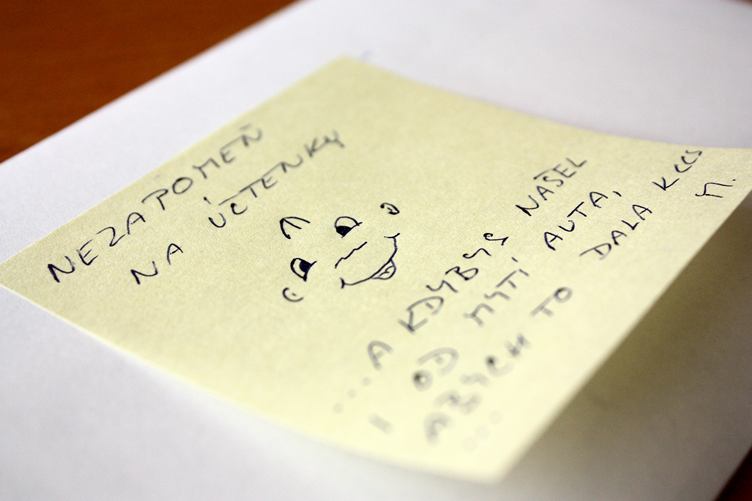 NEZAPOMEŇ
NA ÚČTENKY
...A KDYBYS NAŠEL
I OD MYTÍ AUTA,
ABYCH TO DALA K CCS
...
M.